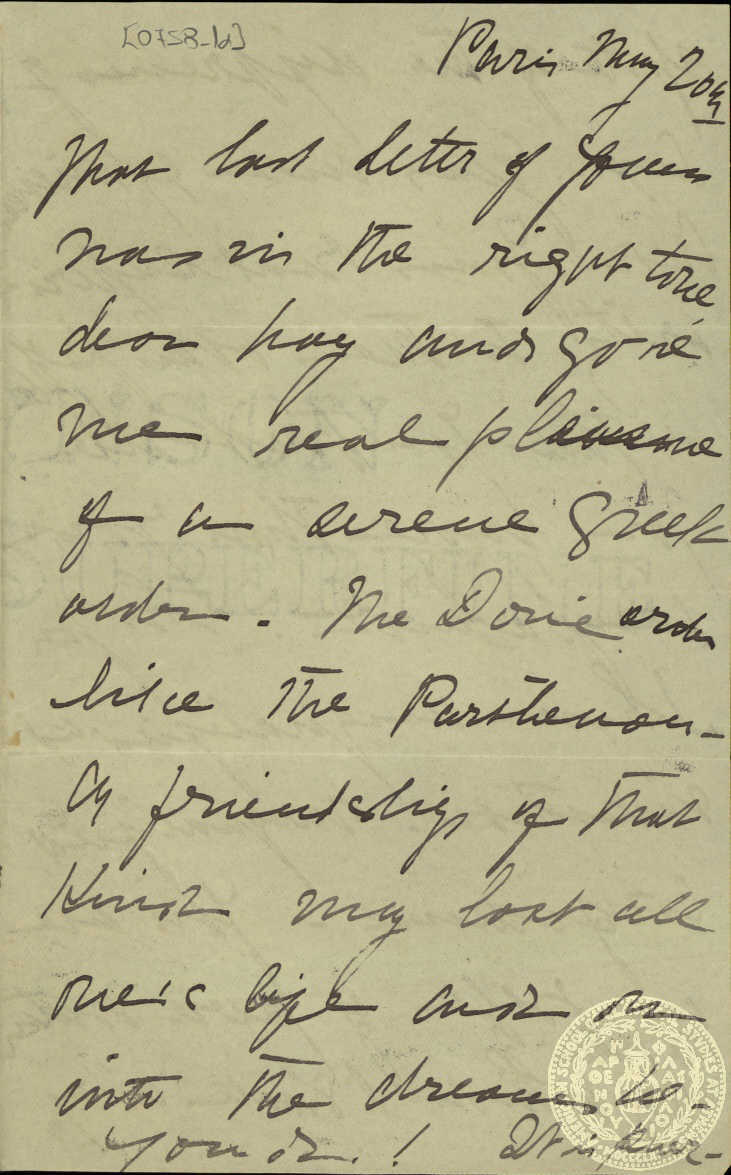 [0758-1d]
Paris May 20th
That last letter of yours
was in the right tone
dear boy and gave
me real pleasure
of a serene Greek
order. The Doric order
like the Parthenon -
A friendship of that
kind may last all
one's life and on
into the dreams be-
yond! It is